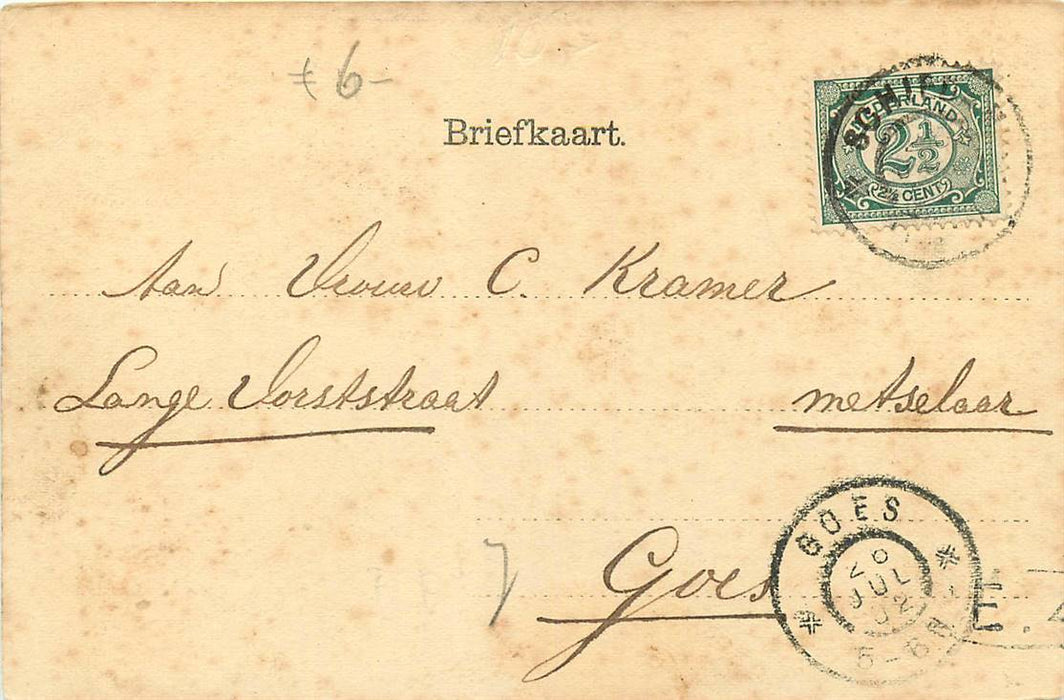 6-
Briefkaart.
NEDERLAND
2½
2½ CENT
Aan Vrouw C. Kramer
Lange Vorststraat metselaar
Goes
GOES
JUL